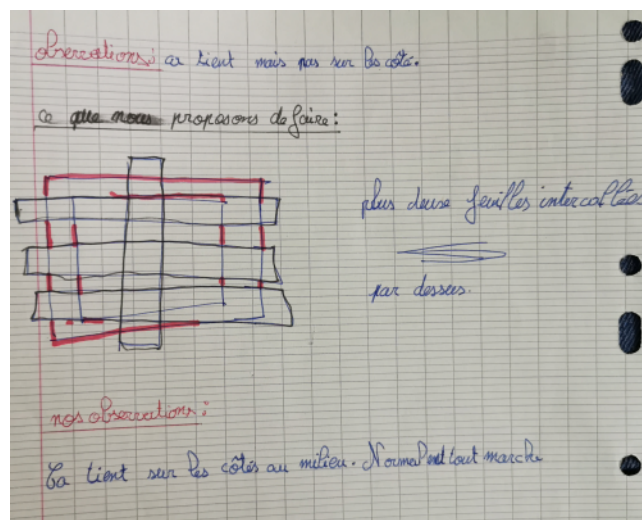 observations: ca tient mais pas sur les coté.
ce que nous proposons de faire:
plus deuse feuilles intercallées
par dessus.
nos observations:
Ca tient sur les côtés au milieu. Normalment tout marche